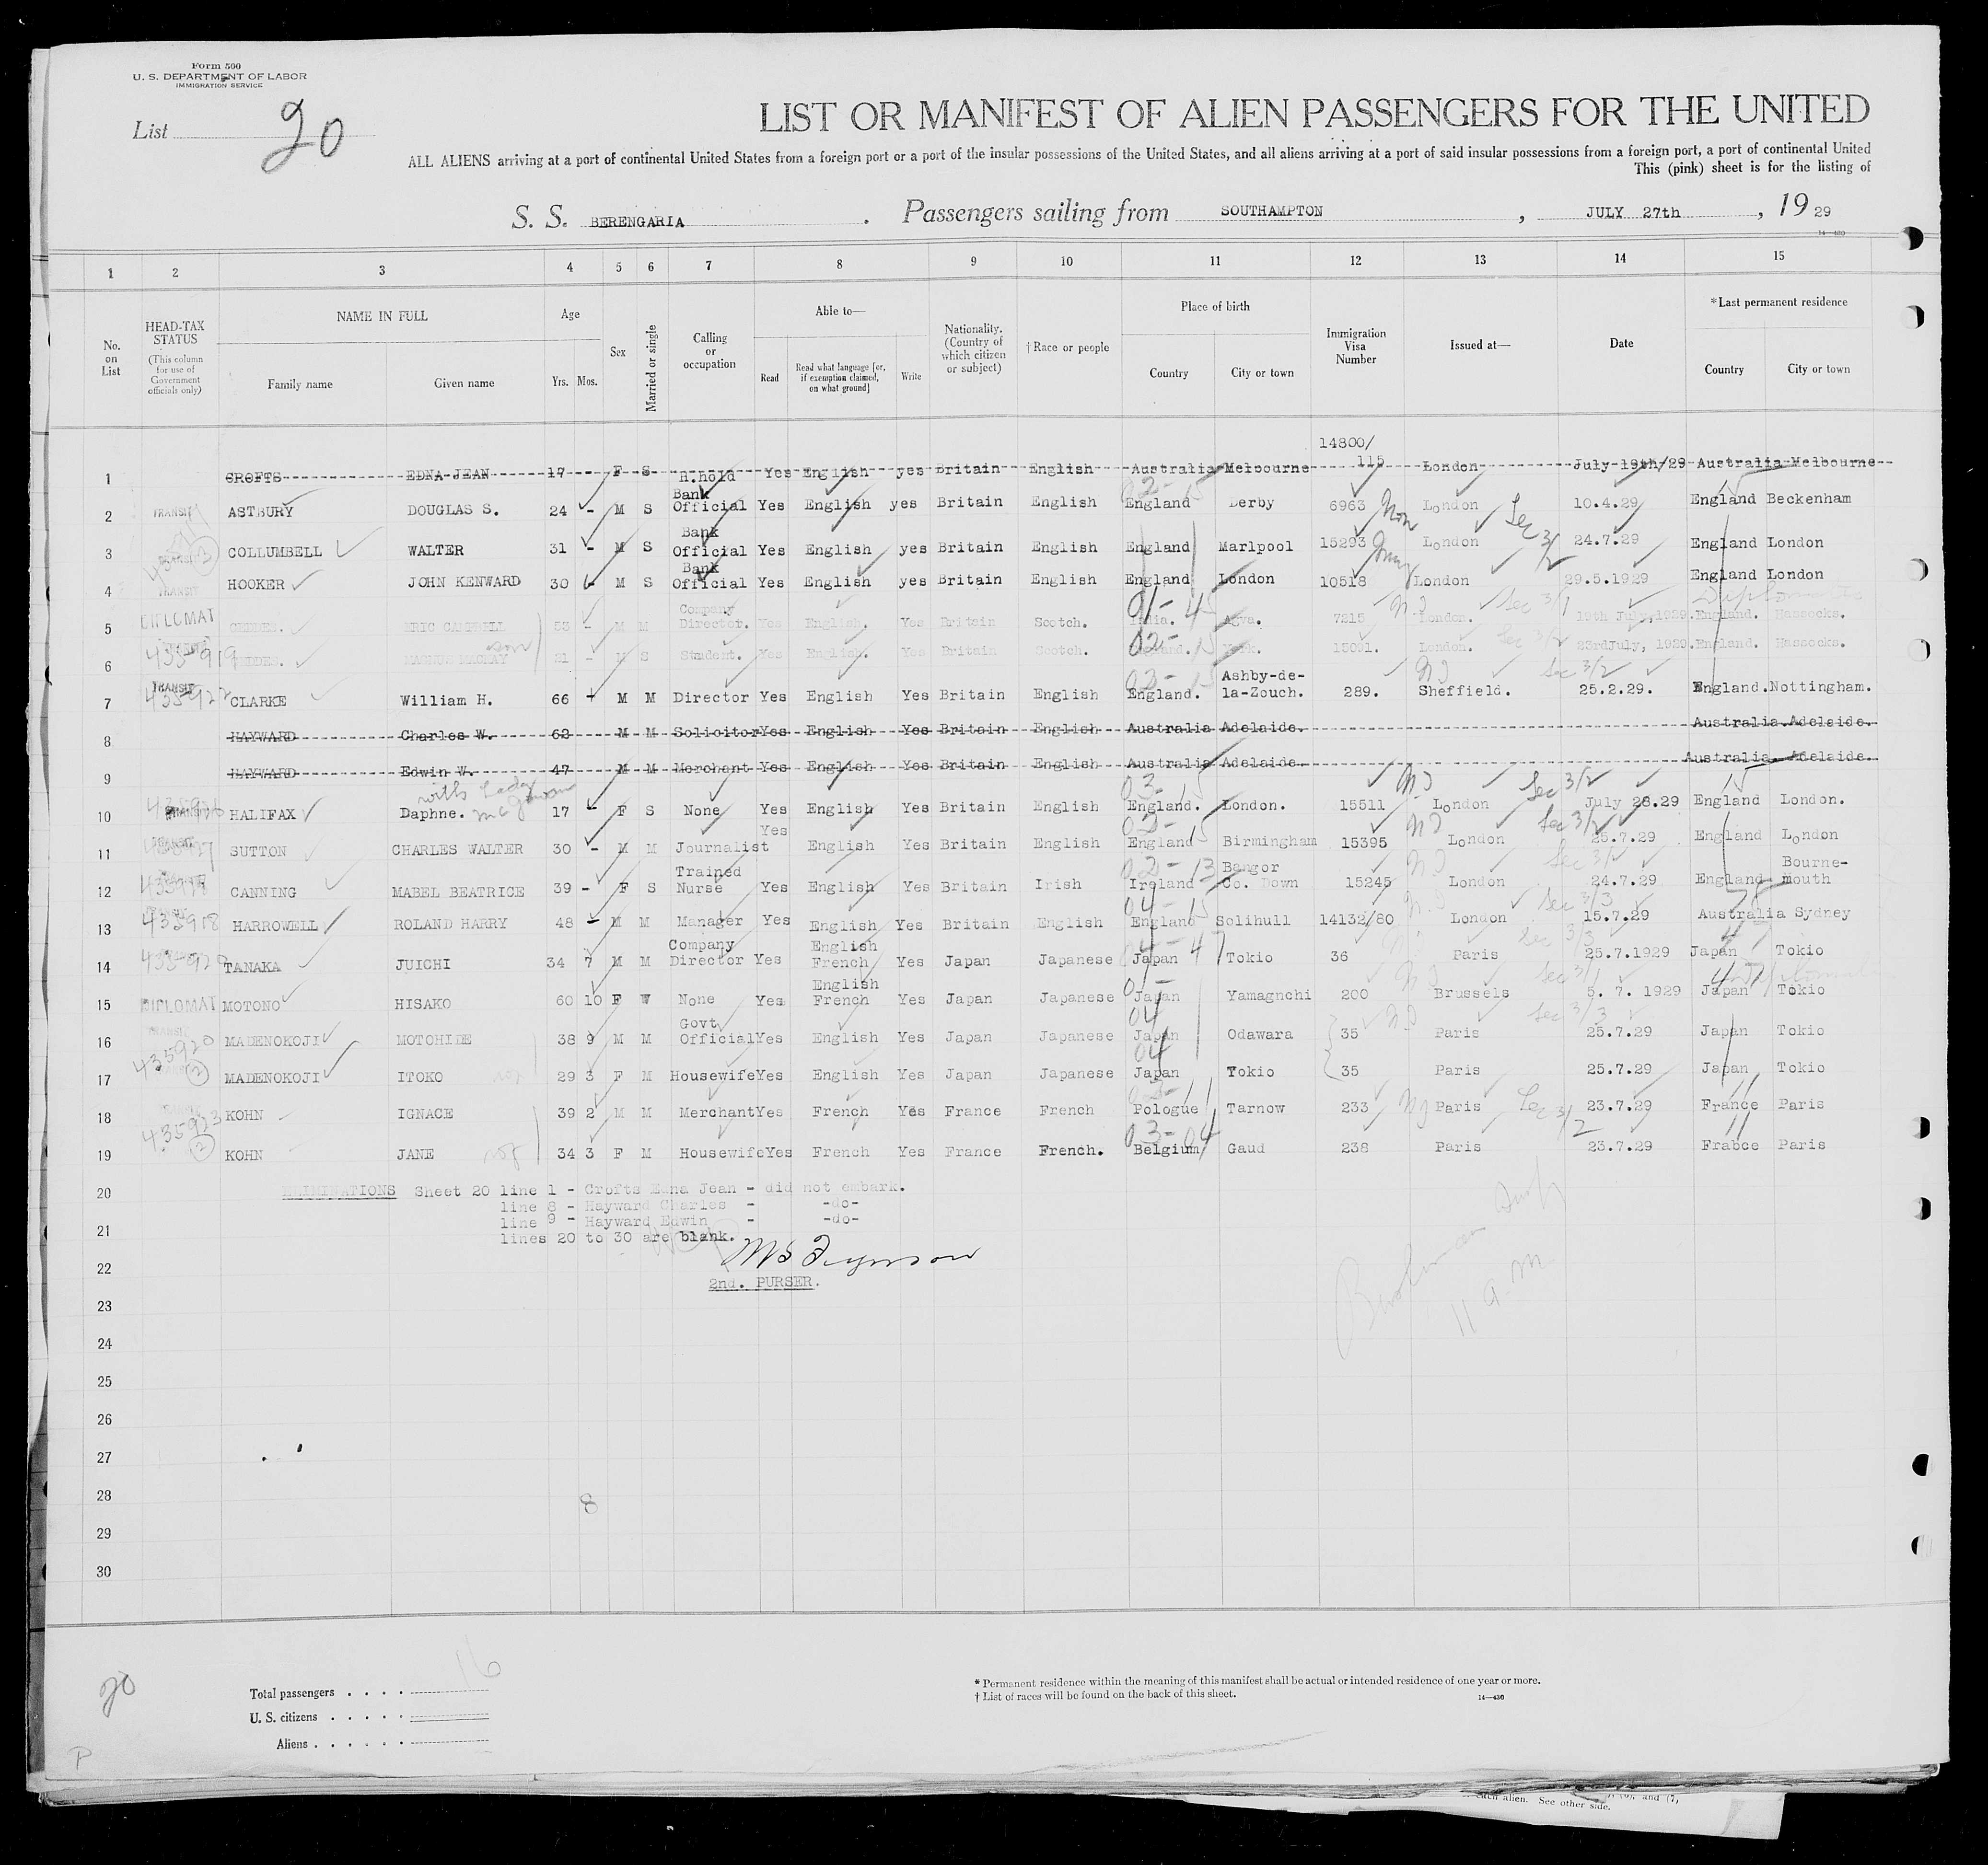 Form 500
U. S. DEPARTMENT OF LABOR
IMMIGRATION SERVICE
List 20
LIST OR MANIFEST OF ALIEN PASSENGERS FOR THE UNITED
ALL ALIENS arriving at a port of continental United States from a foreign port or a port of the insular possessions of the United States, and all aliens arriving at a port of said insular possessions from a foreign port, a port of continental United
This (pink) sheet is for the listing of
S. S. BERENGARIA. Passengers sailing from SOUTHAMPTON, JULY 27th, 19 29
14—430
1 2 3 4 5 6 7 8 9 10 11 12 13 14 15
No. on List
HEAD-TAX STATUS (This column for use of Government officials only)
NAME IN FULL Family name Given name
Age Yrs. Mos.
Sex
Married or single
Calling or occupation
Able to— Read Read what language [or, if exemption claimed, on what ground] Write
Nationality. (Country of which citizen or subject)
† Race or people
Place of birth Country City or town
Immigration Visa Number
Issued at—
Date
*Last permanent residence Country City or town
1 CROFTS EDNA JEAN 17 - F S H.hold Yes English yes Britain English Australia Melbourne 14800/115 London July 19th/29 Australia Melbourne
2 TRANSIT ASTBURY DOUGLAS S. 24 - M S Bank Official Yes English yes Britain English England Derby 6963 London 10.4.29 England Beckenham
3 COLLUMBELL WALTER 31 - M S Bank Official Yes English yes Britain English England Marlpool 15293 London Sec 3/2 24.7.29 England London
4 TRANSIT HOOKER JOHN KENWARD 30 - M S Bank Official Yes English yes Britain English England London 10518 London 29.5.1929 England London
5 DIPLOMAT GEDDES. ERIC CAMPBELL 53 - M M Company Director. Yes English. Yes Britain Scotch. India. 7215 London. Sec 3/1 19th July, 1929. England. Hassocks.
6 435919 GEDDES. MACKAY son 21 - M S Student. Yes English. Yes Britain Scotch. 02-15 15091. London. Sec 3/2 23rdJuly, 1929. England. Hassocks.
7 TRANSIT 435922 CLARKE William H. 66 - M M Director Yes English Yes Britain English England. Ashby-de-la-Zouch. 289. Sheffield. Sec 3/2 25.2.29. England. Nottingham.
8 HAYWARD Charles W. 62 M M Solicitor Yes English Yes Britain English Australia Adelaide. Australia. Adelaide.
9 HAYWARD Edwin W. 47 M M Merchant Yes English Yes Britain English Australia Adelaide. Australia. Adelaide.
10 HALIFAX Daphne. with Lady McGowan 17 - F S None Yes English Yes Britain English England. London. 15511 London Sec 3/2 July 26.29 England London.
11 TRANSIT SUTTON CHARLES WALTER 30 - M M Journalist Yes English Yes Britain English England Birmingham 15395 London Sec 3/2 25.7.29 England London
12 CANNING MABEL BEATRICE 39 - F S Trained Nurse Yes English Yes Britain Irish Ireland Bangor Co. Down 15245 London Sec 3/2 24.7.29 England Bourne-mouth
13 435918 HARROWELL ROLAND HARRY 48 - M M Manager Yes English Yes Britain English England Solihull 14132/80 London Sec 3/3 15.7.29 Australia Sydney
14 TANAKA JUICHI 34 7 M M Company Director Yes English French Yes Japan Japanese Japan Tokio 36 Paris Sec 3/3 25.7.1929 Japan Tokio
15 DIPLOMAT MOTONO HISAKO 60 10 F W None Yes English French Yes Japan Japanese Japan Yamagnchi 200 Brussels Sec 3/1 5. 7. 1929 Japan Tokio
16 TRANSIT 435920 MADENOKOJI MOTOHIDE 38 9 M M Govt Official Yes English Yes Japan Japanese Japan Odawara 35 Paris Sec 3/3 25.7.29 Japan Tokio
17 2 MADENOKOJI ITOKO 29 3 F M Housewife Yes English Yes Japan Japanese Japan Tokio 35 Paris 25.7.29 Japan Tokio
18 435923 KOHN IGNACE 39 2 M M Merchant Yes French Yes France French Pologue Tarnow 233 Paris Sec 3/2 23.7.29 France Paris
19 2 KOHN JANE 34 3 F M Housewife Yes French Yes France French. Belgium Gaud 238 Paris 23.7.29 Frabce Paris
20 ELIMINATIONS Sheet 20 line 1 - Crofts Edna Jean - did not embark.
line 8 - Hayward Charles - -do-
21 line 9 - Hayward Edwin - -do-
lines 20 to 30 are blank.
22
2nd. PURSER.
23
24
11 a.m.
25
26
27
28 8
29
30
20
Total passengers . . . . 16
U. S. citizens . . . . .
Aliens . . . . . .
* Permanent residence within the meaning of this manifest shall be actual or intended residence of one year or more.
† List of races will be found on the back of this sheet.
14—430
P
each alien. See other side.